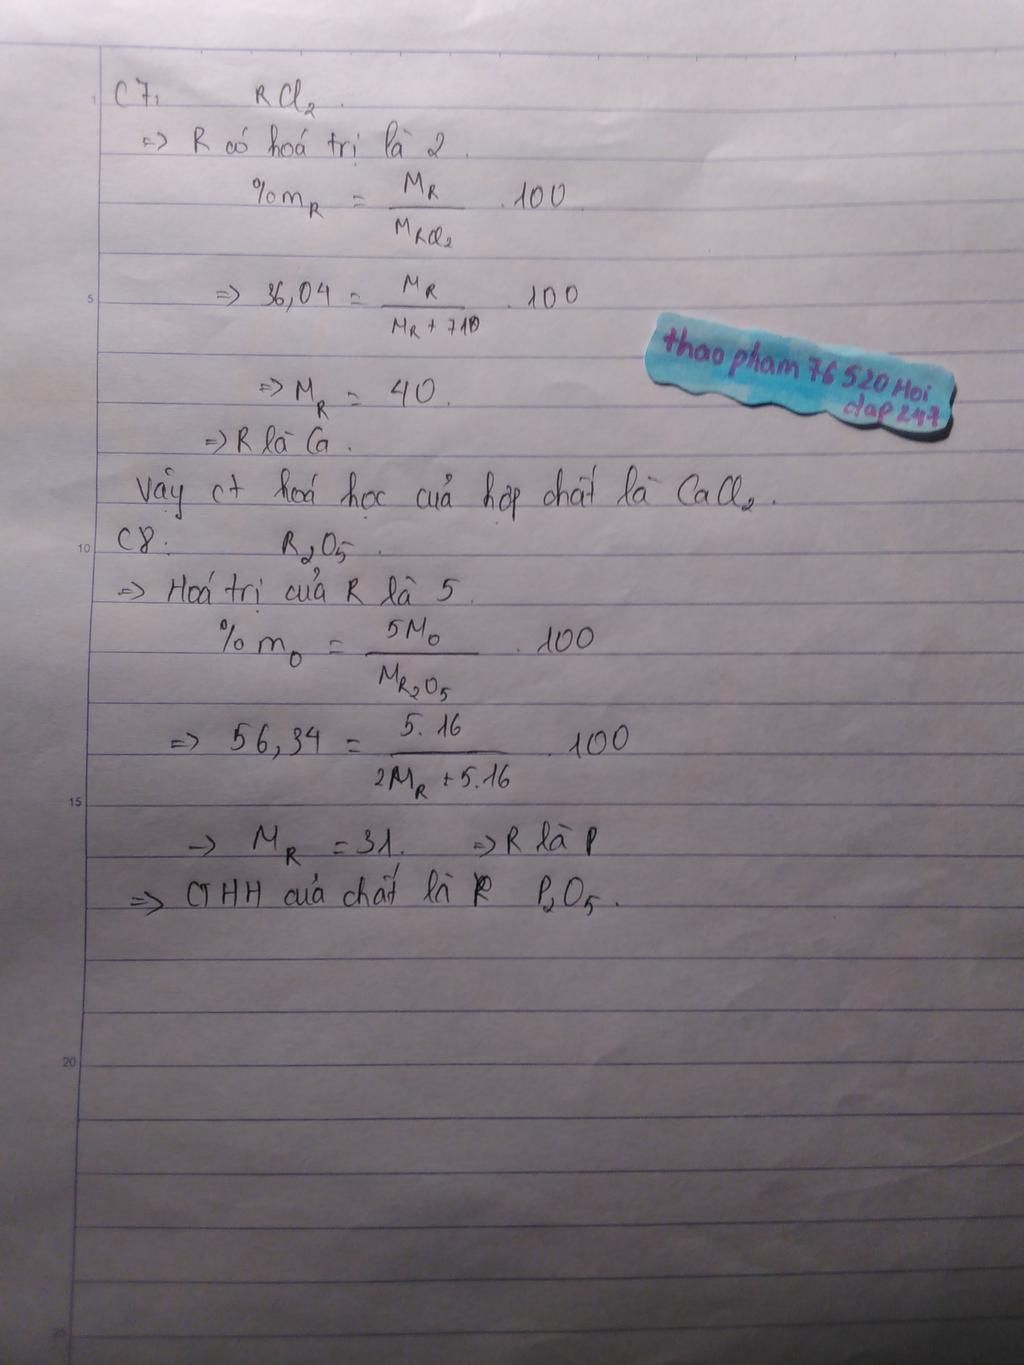 C7, RCl₂.
=> R có hoá trị là 2.
%m_R = M_R / M_RCl₂ . 100
=> 36,04 = M_R / (M_R + 71) . 100
=> M_R = 40.
=> R là Ca.
Vậy ct hoá học của hợp chất là CaCl₂.
C8: R₂O₅.
=> Hoá trị của R là 5.
%m_O = 5M_O / M_R₂O₅ . 100
=> 56,34 = 5.16 / (2M_R + 5.16) . 100
-> M_R = 31. => R là P
=> CTHH của chất là P₂O₅.
thao pham 76520 Hoi
dap 247
1
5
10
15
20
25